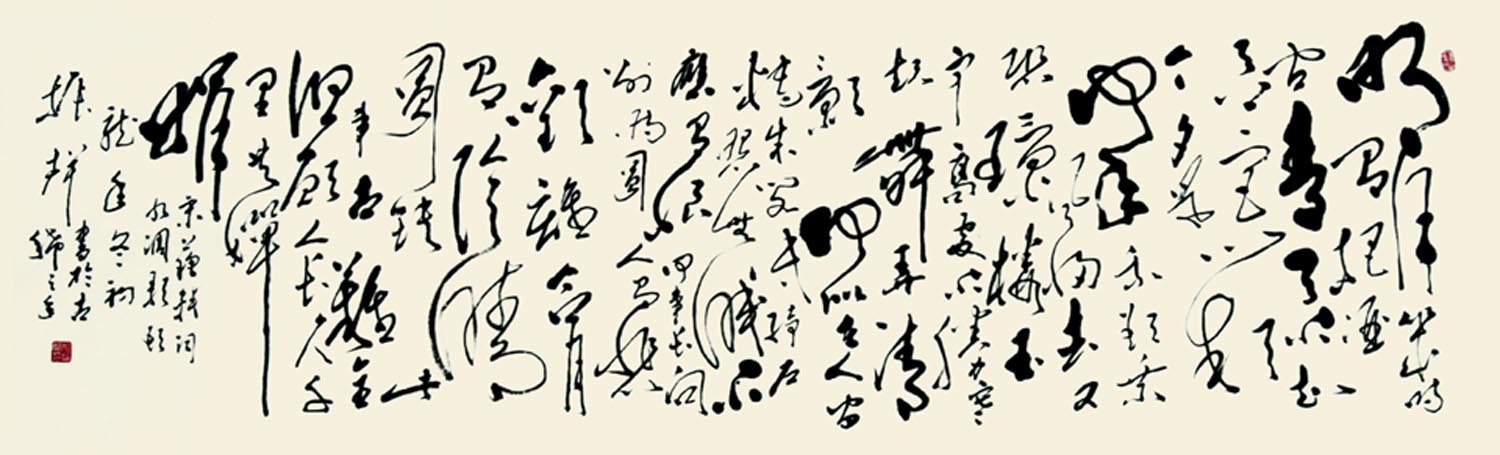 明月几时
有把酒
问青天不知
天上宫阙
今夕是
何年我欲乘
风归去又
恐琼楼玉
宇高处不胜寒
起舞弄清
影何似在人间
转朱阁低绮户
照无眠不
应有恨何事长向
别时圆人有悲
欢离合月
有阴晴
圆缺此
事古难全
但愿人长久千
里共婵
娟
宋苏轼词
水调歌头
龙年
书于古